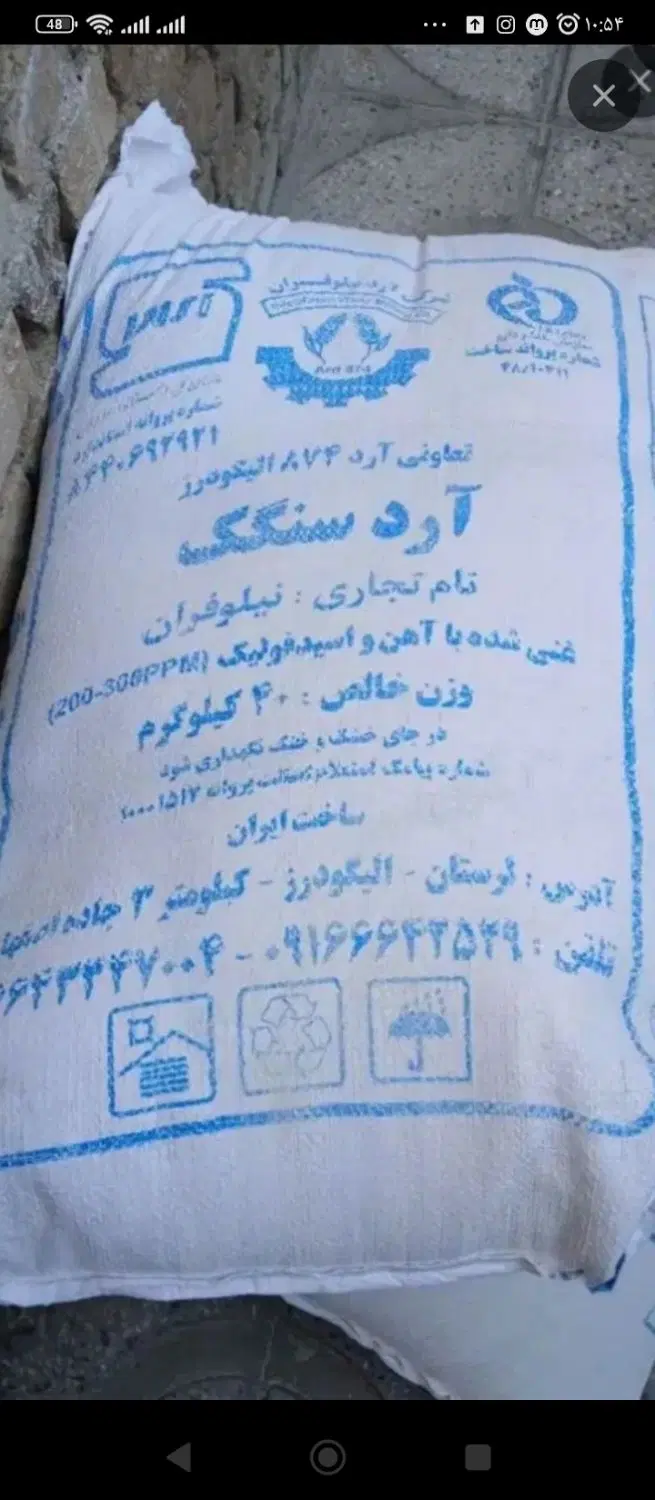 48
۱۰:۵۴
شرکت آرد نیلوفران
Ard 874
شماره پروانه ساخت
تعاونی آرد ۸۷۴ الیگودرز
آرد سنگک
نام تجاری : نیلوفران
غنی شده با آهن و اسیدفولیک (200-300PPM)
وزن خالص : ۴۰ کیلوگرم
در جای خشک و خنک نگهداری شود
شماره پیامک استعلام اصالت پروانه ۱۰۰۰۱۵۱۷
ساخت ایران
آدرس : لرستان - الیگودرز - کیلومتر ۳ جاده
تلفن : ۰۹۱۶۶۶۴۲۵۴۹ -